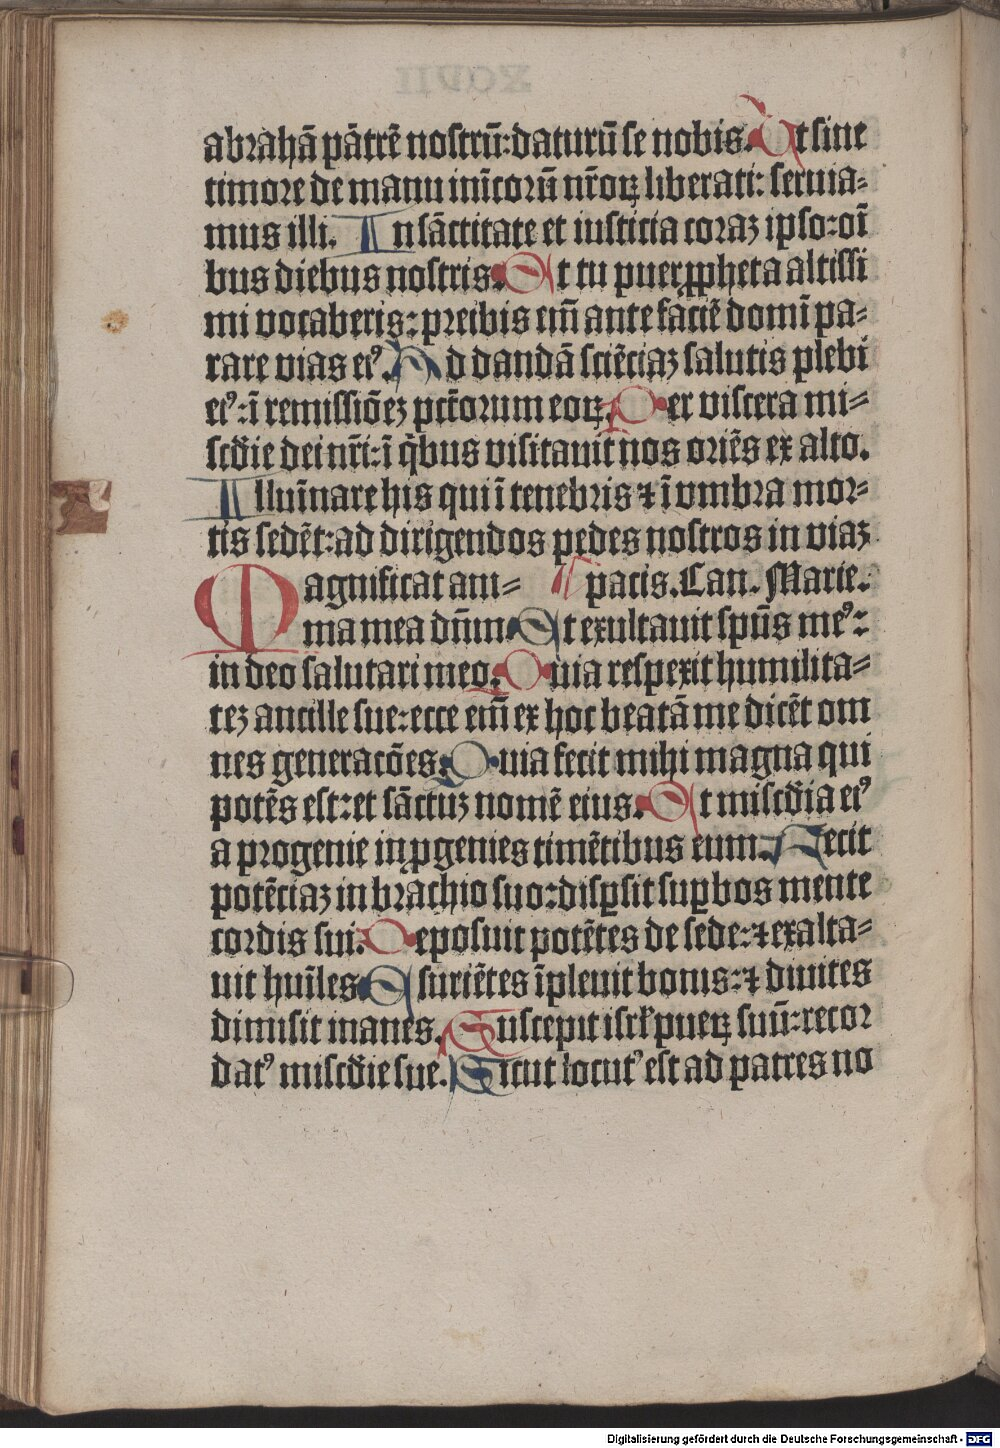 abrahā pātrē nostrū:daturū se nobis. Ut sine
timore de manu inīcorū nr̄oꝝ liberati: seruia⸗
mus illi. In sāctitate et iusticia coraꝫ ipso:oī
bus diebus nostris. Et tu puer ꝓpheta altissi
mi vocaberis: preibis em̄ ante faciē domī pa⸗
rare vias eiꝰ. Ad dandā sciēciaꝫ salutis plebi
eiꝰ:ī remissiōeꝫ pctōrum eoꝝ. Per viscera mi⸗
scd̄ie dei nr̄i:ī q̄bus visitauit nos oriēs ex alto.
Illuīnare his qui ī tenebris ⁊ ī vmbra mor⸗
tis sedēt:ad dirigendos pedes nostros in viaꝫ
Magnificat ani⸗ pacis. Can. Marie.
ma mea dn̄m. Et exultauit spūs meꝰ:
in deo salutari meo. Quia respexit humilita⸗
teꝫ ancille sue:ecce em̄ ex hoc beatā me dicēt om
nes generacōes. Quia fecit mihi magna qui
potēs est:et sāctuꝫ nomē eius. Et miscd̄ia eiꝰ
a progenie in ꝓgenies timētibus eum. Fecit
potēciaꝫ in brachio suo:disꝑsit suꝑbos mente
cordis sui. Deposuit potētes de sede:⁊ exalta⸗
uit huīles. Esuriētes īpleuit bonis:⁊ diuites
dimisit inanes. Suscepit isrl̄ pueꝝ suū:recor
datꝰ miscd̄ie sue. Sicut locutꝰ est ad patres no
Digitalisierung gefördert durch die Deutsche Forschungsgemeinschaft - DFG